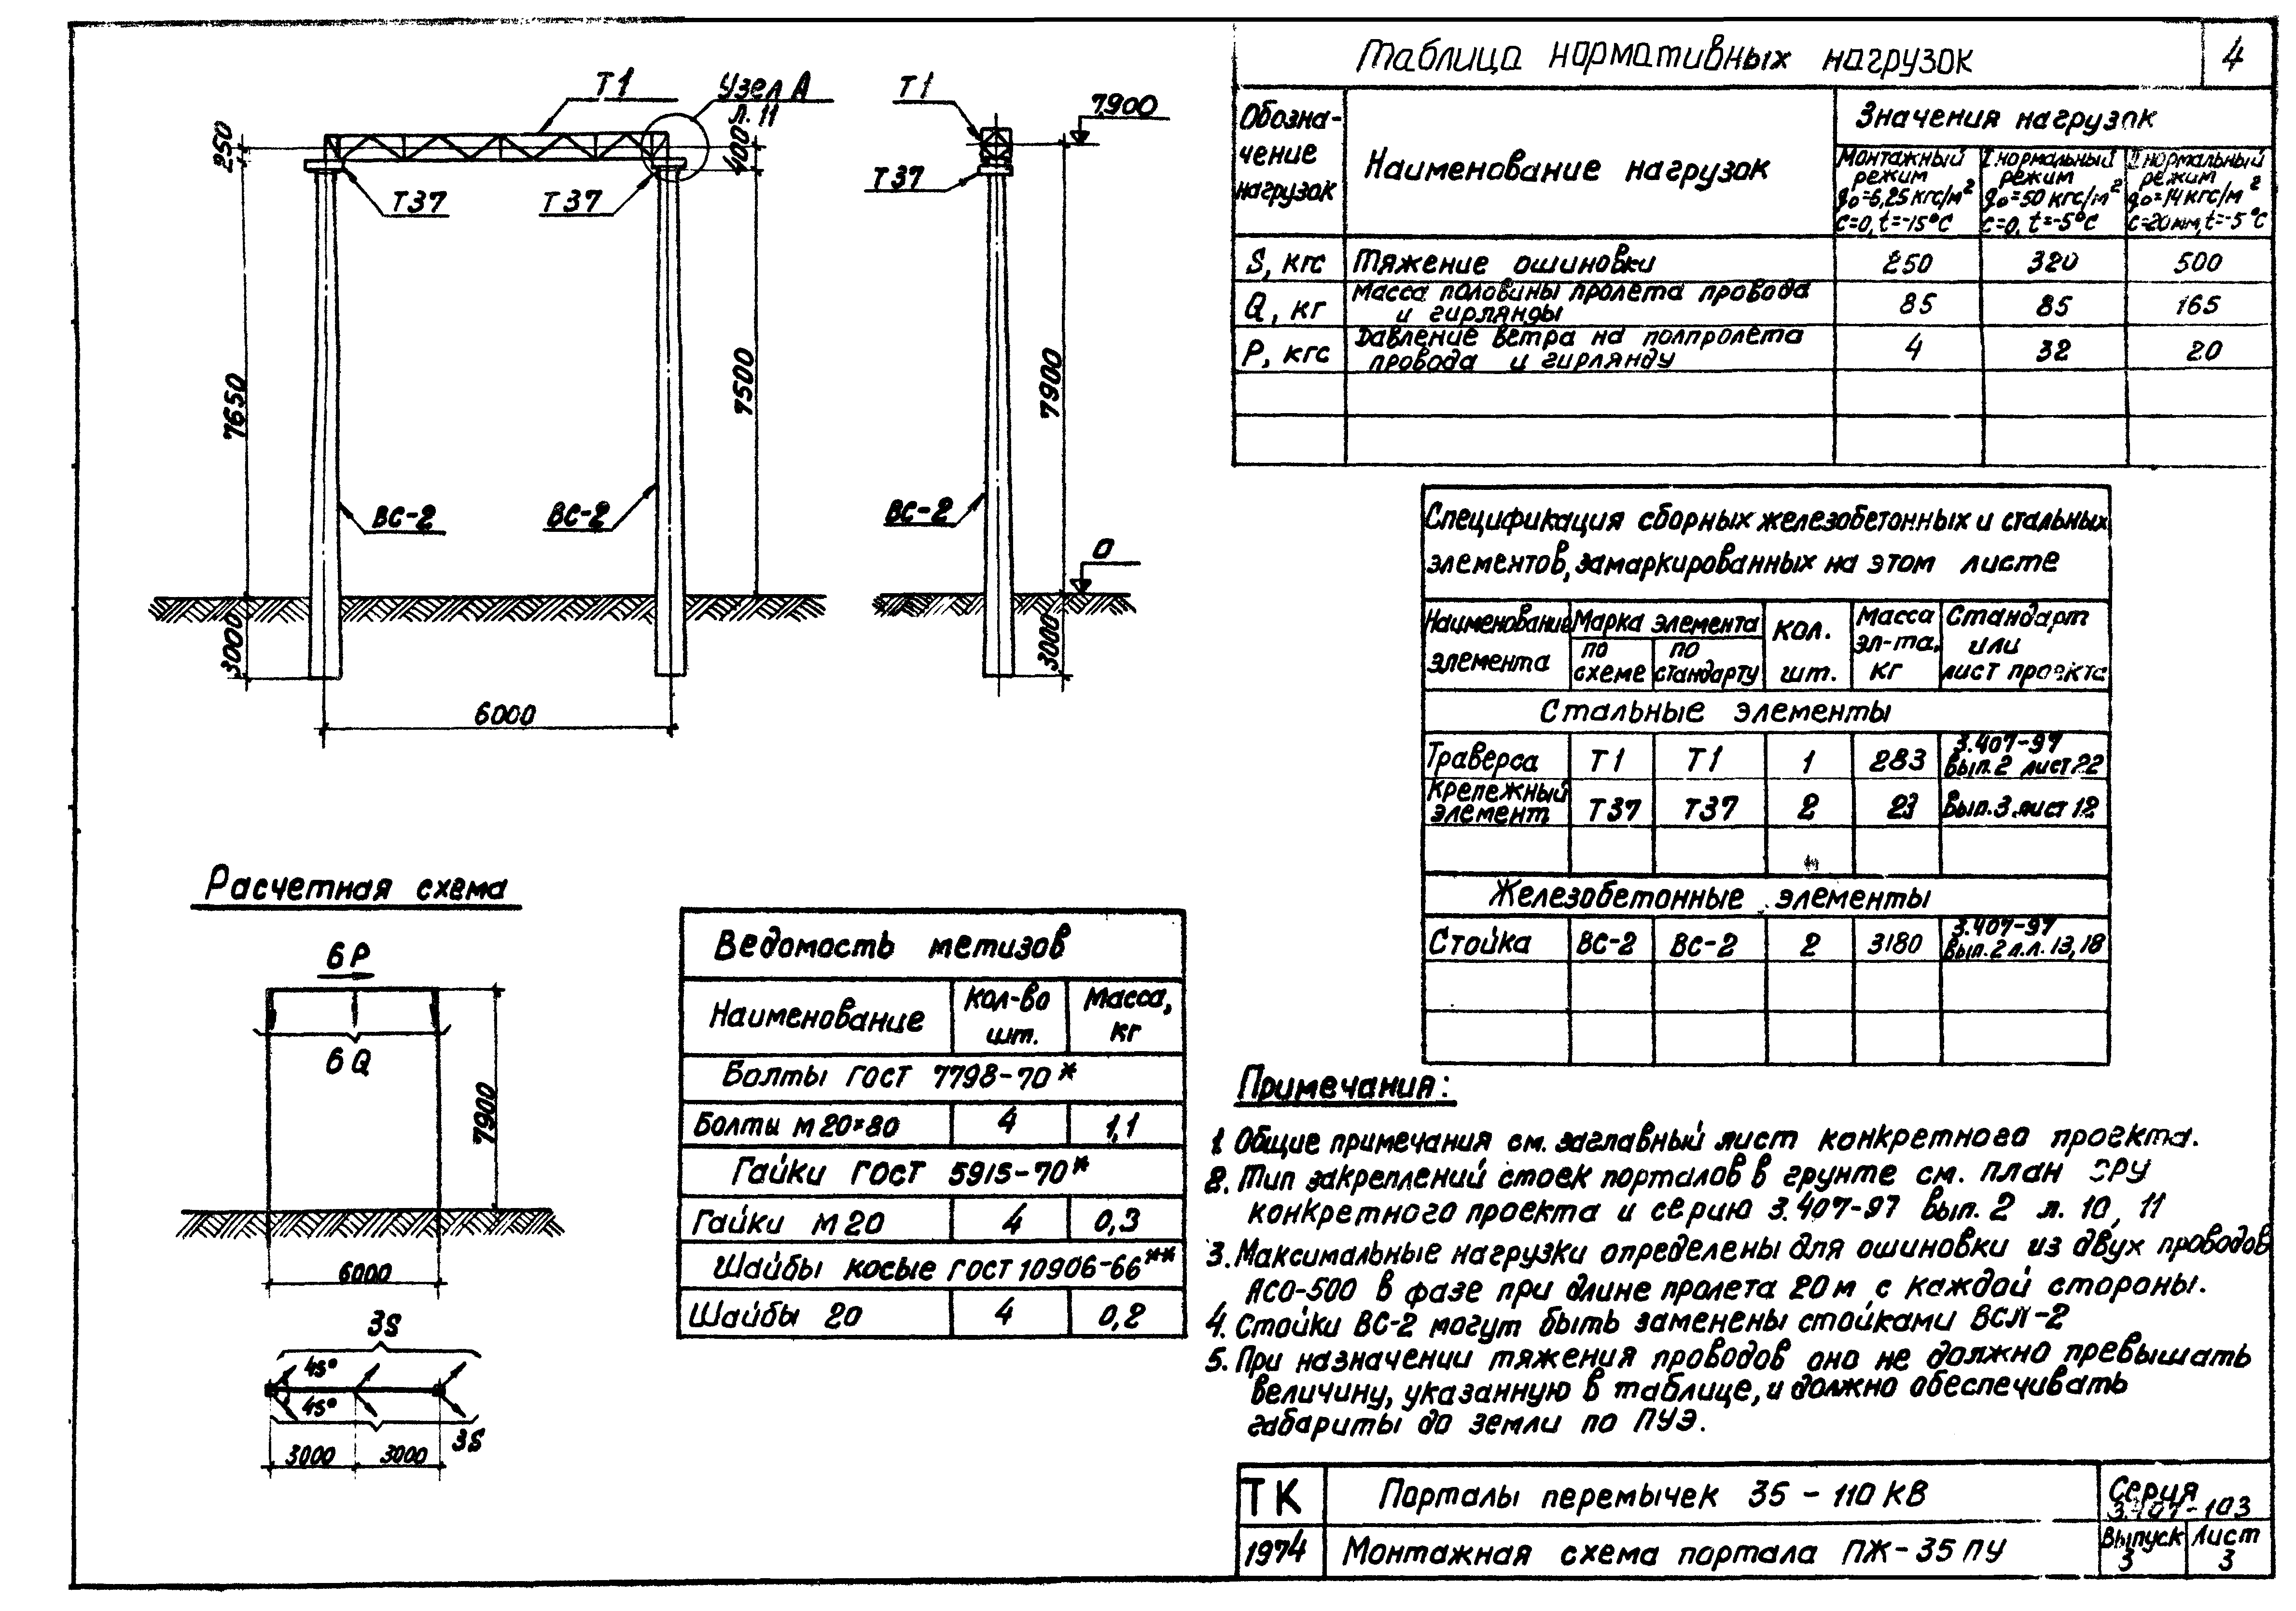 Т1
Узел А
л. 11
250
400
Т37
Т37
7650
7500
ВС-2
ВС-2
3000
6000
Т1
7.900
Т37
7900
ВС-2
0
3000
Таблица нормативных нагрузок
4
Обозна-
чение
нагрузок
Наименование нагрузок
Значения нагрузок
Монтажный
режим
q₀=6,25 кгс/м²
с=0, t=-15°С
I нормальный
режим
q₀=50 кгс/м²
с=0, t=-5°С
II нормальный
режим
q₀=14 кгс/м²
с=20 мм, t=-5°С
S, кгс Тяжение ошиновки 250 320 500
Q, кг Масса половины пролета провода
и гирлянды 85 85 165
Р, кгс Давление ветра на полпролета
провода и гирлянду 4 32 20
Спецификация сборных железобетонных и стальных
элементов, замаркированных на этом листе
Наименование
элемента
Марка элемента
по
схеме
по
стандарту
Кол.
шт.
Масса
эл-та,
кг
Стандарт
или
лист проекта
Стальные элементы
Траверса Т1 Т1 1 283 3.407-97
Вып. 2 лист 22
Крепежный
элемент Т37 Т37 2 23 Вып. 3 лист 12
Железобетонные элементы
Стойка ВС-2 ВС-2 2 3180 3.407-97
Вып. 2 л.л. 13, 18
Расчетная схема
6Р
6Q
7900
6000
3S
45°
45°
3S
3000
3000
Ведомость метизов
Наименование
Кол-во
шт.
Масса,
кг
Болты ГОСТ 7798-70*
Болты М20×80 4 1,1
Гайки ГОСТ 5915-70*
Гайки М20 4 0,3
Шайбы косые ГОСТ 10906-66**
Шайбы 20 4 0,2
Примечания:
1. Общие примечания см. заглавный лист конкретного проекта.
2. Тип закреплений стоек порталов в грунте см. план ОРУ
конкретного проекта и серию 3.407-97 вып. 2 л. 10, 11
3. Максимальные нагрузки определены для ошиновки из двух проводов
АСО-500 в фазе при длине пролета 20 м с каждой стороны.
4. Стойки ВС-2 могут быть заменены стойками ВСЛ-2
5. При назначении тяжения проводов оно не должно превышать
величину, указанную в таблице, и должно обеспечивать
габариты до земли по ПУЭ.
ТК
1974
Порталы перемычек 35 - 110 КВ
Монтажная схема портала ПЖ-35ПУ
Серия
3.407-103
Выпуск
3
Лист
3